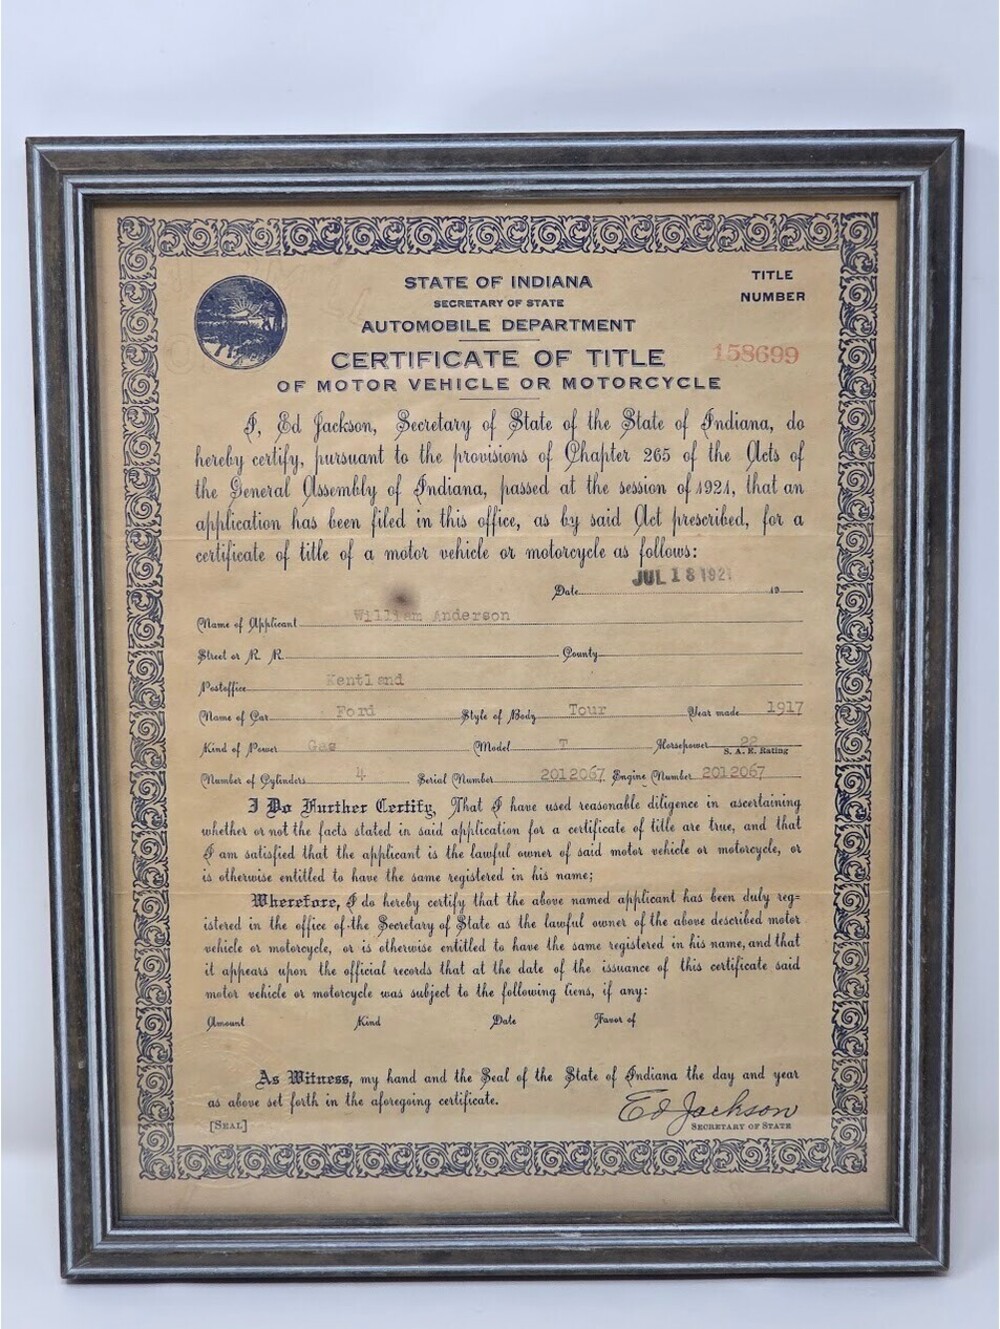 STATE OF INDIANA
SECRETARY OF STATE
AUTOMOBILE DEPARTMENT
CERTIFICATE OF TITLE
OF MOTOR VEHICLE OR MOTORCYCLE
TITLE
NUMBER
158699
I, Ed Jackson, Secretary of State of the State of Indiana, do
hereby certify, pursuant to the provisions of Chapter 265 of the Acts of
the General Assembly of Indiana, passed at the session of 1921, that an
application has been filed in this office, as by said Act prescribed, for a
certificate of title of a motor vehicle or motorcycle as follows:
Date JUL 18 1921 19
Name of Applicant William Anderson
Street or R. R. County
Postoffice Kentland
Name of Car Ford Style of Body Tour Year made 1917
Kind of Power Gas Model T Horsepower 22
S. A. E. Rating
Number of Cylinders 4 Serial Number 2012067 Engine Number 2012067
I Do Further Certify, That I have used reasonable diligence in ascertaining
whether or not the facts stated in said application for a certificate of title are true, and that
I am satisfied that the applicant is the lawful owner of said motor vehicle or motorcycle, or
is otherwise entitled to have the same registered in his name;
Wherefore, I do hereby certify that the above named applicant has been duly reg=
istered in the office of the Secretary of State as the lawful owner of the above described motor
vehicle or motorcycle, or is otherwise entitled to have the same registered in his name, and that
it appears upon the official records that at the date of the issuance of this certificate said
motor vehicle or motorcycle was subject to the following liens, if any:
Amount Kind Date Favor of
As Witness, my hand and the Seal of the State of Indiana the day and year
as above set forth in the aforegoing certificate.
Ed Jackson
[SEAL] SECRETARY OF STATE